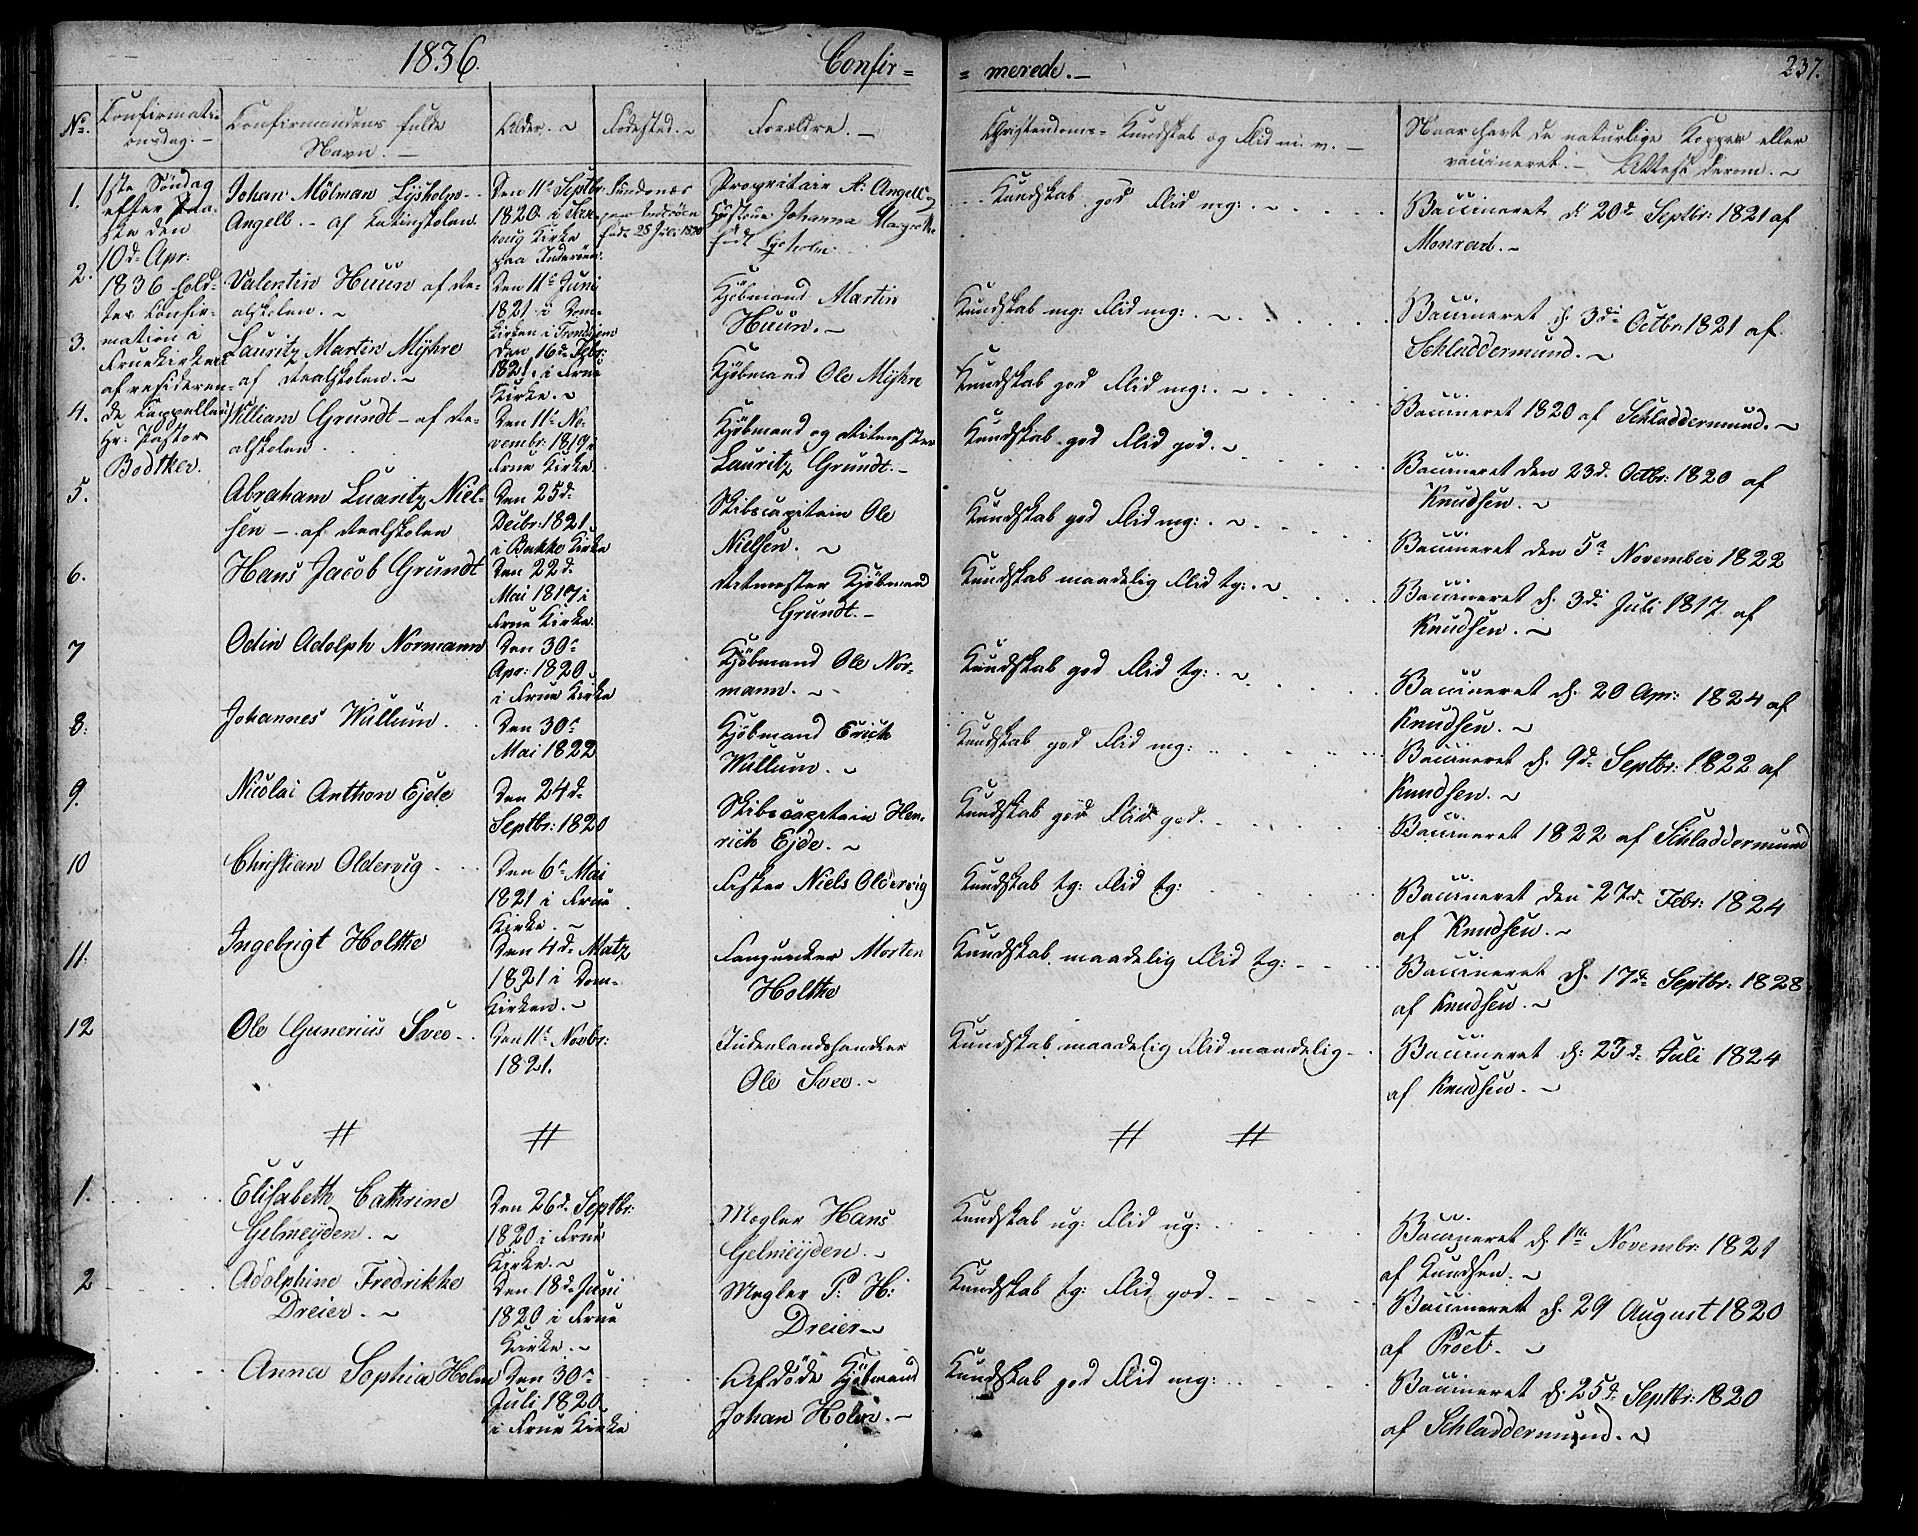 1836. Confir= = merede. — 237.
No. Confirmati-
onsdag. —
Confirmandens fulde
Navn. —
Alder. ~
Fødested. ~
Forældre. —
Christendoms-Kundskab og Flid m. v. —
Naar havt de naturlige Kopper eller
vaccineret. — Attest derom. ~
1ste Søndag
efter Paa-
ske den
10d. Apr:
1836 hold-
tes Confir-
mation i
Fruekirken
af resideren-
de Cappellan
Hr: Pastor
Bødtker.
1.
Johan Mölman Lÿsholm-
Angell. — af Latinskolen.
Den 11te Septbr:
1820 i Sax-
houg Kirke
paa Inderøen.
Sundnæs
paa Inderøen
født 28 Juli 1820
Proprietair A: Angell og
Hustrue Johanna Margrethe
født Lysholm
Kundskab god Flid mg: ~
Vaccineret d: 20de Septbr: 1821 af
Monrad. ~
2.
Valentin Huun af Re-
alskolen. ~
Den 11te Juni
1821 i Dom-
kirken i Trondhjem
Kjöbmand Martin
Huun. ~
Kundskab mg: Flid mg: . ~
Vaccineret d. 3die Octbr: 1821 af
Schladdermund. ~
3.
Lauritz Martin Mÿhre
af Realskolen. ~
Den 16de Febr:
1821. i Frue
Kirke. ~
Kjöbmand Ole Mÿhre
Kundskab god Flid mg: . ~
Vaccineret 1820 af Schladdermund. ~
4.
William Grundt — af Re-
alskolen.
Den 11te No-
vembr: 1819 i
Frue Kirke.
Kjöbmand og Ritmester
Lauritz Grundt. —
Kundskab god Flid god. ~
Vaccineret den 23d. Octbr: 1820 af
Knudsen. ~
5.
Abraham Luaritz Niel-
sen — af Realskolen
Den 25d.
Decbr: 1821.
i Bakke Kirke
Skibscapitain Ole
Nielsen. ~
Kundskab god Flid mg: . ~
Vaccineret den 5te November 1822
6.
Hans Jacob Grundt
Den 22d.
Mai 1817 i
Frue Kirke.
Ritmester Kjöbmand
Grundt. —
Kundskab maadelig Flid tg: . ~
Vaccineret d. 3die Juli 1817 af
Knudsen. ~
7
Odin Adolph Normann
Den 30te
Apr: 1820.
i Frue Kirke
Kjöbmand Ole Nor-
mann. ~
Kundskab god Flid tg: . ~
Vaccineret d. 20 Apr: 1824 af
Knudsen. ~
8.
Johannes Wullum.
Den 30te
Mai 1822
Kjöbmand Erich
Wullum. ~
Kundskab god Flid mg:
Vaccineret d. 9d. Septbr: 1822 af
Knudsen. ~
9.
Nicolai Anthon Ejde
Den 24d.
Septbr: 1820
Skibscapitain Hen-
rich Ejde. ~
Kundskab god Flid god.
Vaccineret 1822 af Schladdermund
10
Christian Oldervig
Den 6te Mai
1821 i Frue
Kirke. ~
Fisker Niels Oldervig
Kundskab tg: Flid tg:
Vaccineret den 27d. Febr: 1824
af Knudsen. ~
11.
Ingebrigt Holthe
Den 4d. Matz
1821 i Dom-
Kirken. ~
Morten
Holthe
Kundskab maadelig Flid tg:
Vaccineret d. 17d. Septbr: 1828
af Knudsen. ~
12
Ole Gunerius Sveo
Den 11te Novbr:
1821.
Indenlandshandler
Ole Sveo. ~
Kundskab maadelig Flid maadelig
Vaccineret d: 23d. Juli 1824
af Knudsen. ~
# # # #
1.
Elisabeth Cathrine
Gelmeÿden. ~
Den 26d. Septbr:
1820 i Frue
Kirke. ~
Mægler Hans
Gelmeÿden. ~
Kundskab ug: Flid ug:
Vaccineret d. 1ste Novembr: 1821
af Knudsen. ~
2
Adolphine Fredrikke
Dreier. ~
Den 18d. Juni
1820 i Frue
Kirke. ~
Mægler P: H:
Dreier ~
Kundskab tg: Flid god.
Vaccineret d. 29 August 1820
af Pröet. ~
Anna Sophia Holm
Den 30te
Juli 1820.
i Frue Kirke
Afdöde Kjöbmand
Johan Holm. ~
Kundskab god Flid mg:
Vaccineret d. 25d. Septbr: 1820
af Schladdermund. ~